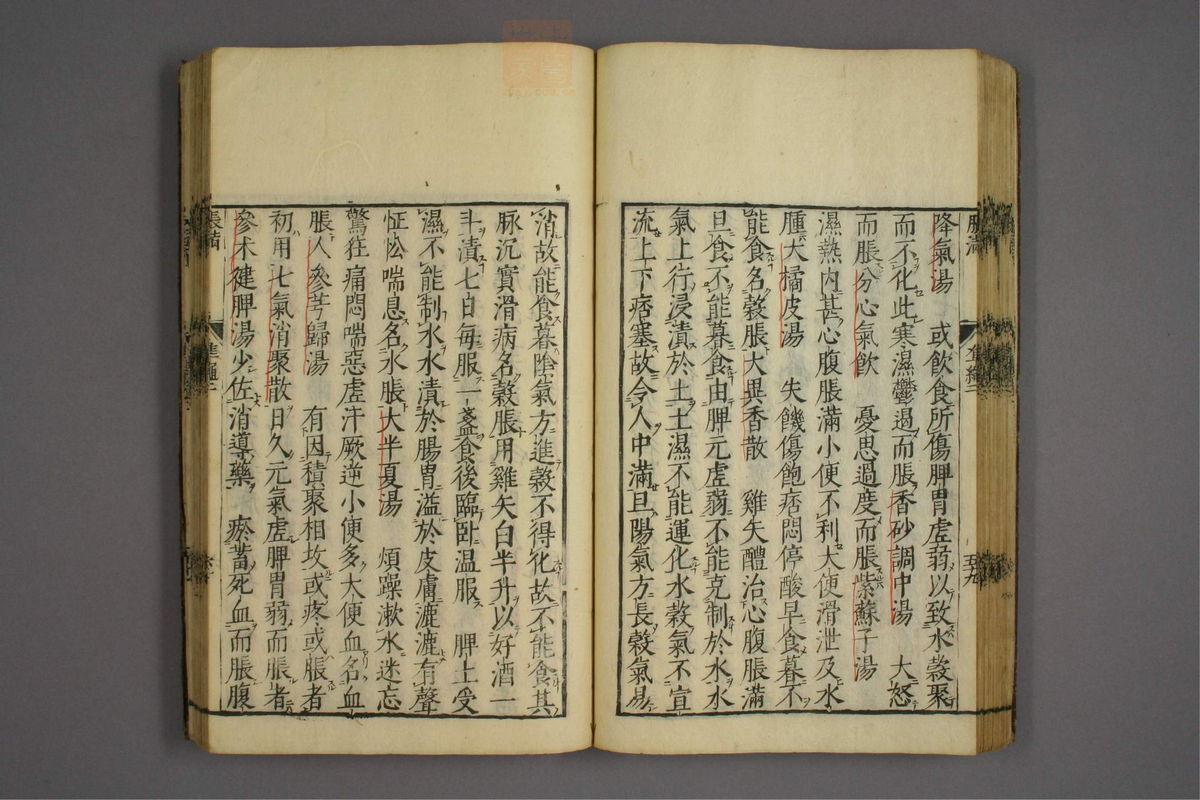 降氣湯 或飲食所傷脾胃虛弱以致水穀聚
而不化此寒濕鬱遏而脹香砂調中湯 大怒
而脹分心氣飲 憂思過度而脹紫蘇子湯
濕熱内甚心腹脹滿小便不利大便滑泄及水
腫大橘皮湯 失饑傷飽痞悶停酸早食暮不
能食名穀脹大異香散 雞矢醴治心腹脹滿
旦食不能暮食由脾元虛弱不能克制於水水
氣上行浸漬於土土濕不能運化水穀氣不宣
流上下痞塞故令人中滿旦陽氣方長穀氣易
消故能食暮陰氣方進穀不得化故不能食其
脉沉實滑病名穀脹用雞矢白半升以好酒一
斗漬七日每服一盞食後臨卧温服 脾土受
濕不能制水水漬於腸胃溢於皮膚漉漉有聲
怔忪喘息名水脹大半夏湯 煩躁漱水迷忘
驚狂痛悶喘惡虛汗厥逆小便多大便血名血
脹人參芎歸湯 有因積聚相攻或疼或脹者
初用七氣消聚散日久元氣虛脾胃弱而脹者
參术健脾湯少佐消導藥 瘀蓄死血而脹腹